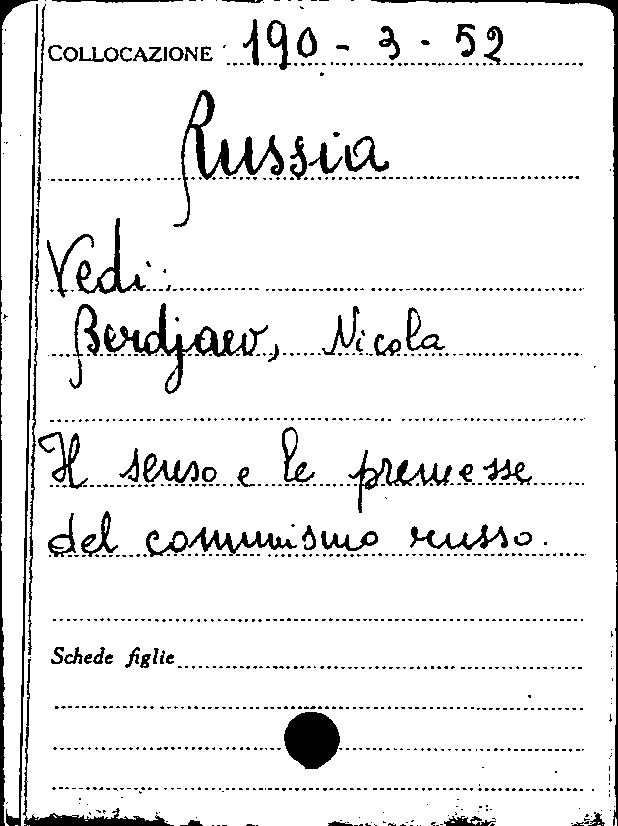 COLLOCAZIONE 190 - 3 - 52
Russia
Vedi:
Berdjaev, Nicola
Il senso e le premesse
del comunismo russo.
Schede figlie